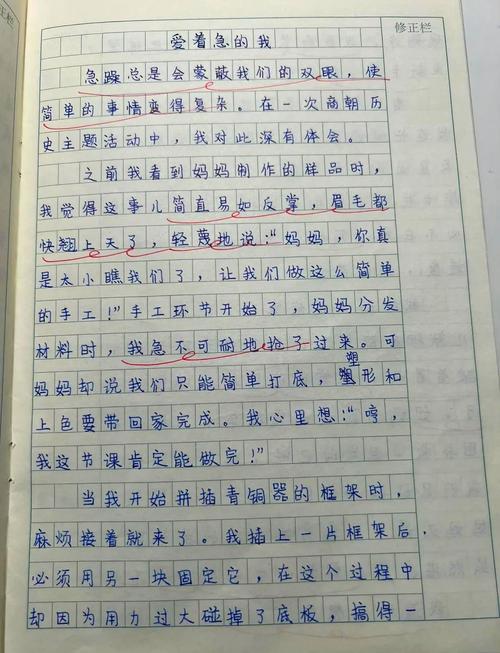 修正栏
爱着急的我
急躁总是会蒙蔽我们的双眼，使
简单的事情变得复杂。在一次商朝历
史主题活动中，我对此深有体会。
之前我看到妈妈制作的样品时，
我觉得这事儿简直易如反掌，眉毛都
快翘上天了，轻蔑地说：“妈妈，你真
是太小瞧我们了，让我们做这么简单
的手工！”手工环节开始了，妈妈分发
材料时，我急不可耐地抢了过来。可
塑
妈妈却说我们只能简单打底，塑形和
上色要带回家完成。我心里想：“哼，
我这节课肯定能做完！”
当我开始拼插青铜器的框架时，
麻烦接着就来了。我插上一片框架后，
必须用另一块固定它，在这个过程中
却因为用力过大碰掉了底板，搞得一